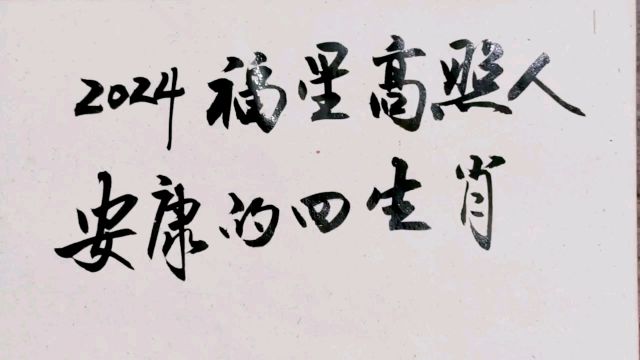 2024福星高照人
安康的四生肖